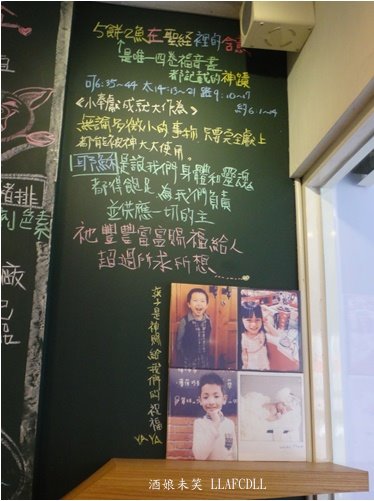 5餅2魚在聖經裡的含意
↑是唯一四卷福音書
都記載的神蹟
可6:35~44 太14:13~21 路9:10~17
約6:1~14
《小奉獻成就大作為》
無論多微小的事物,只要完全獻上
都能被神大大使用。
耶穌是讓我們身體和靈魂
都得飽足,為我們負責
並供應一切的主
祂豐豐富富賜福給人
超過所求所想......
孩子是神賜給我們的祝福
YA YA
豬排
色素
酒娘未笑 LLAFCDLL